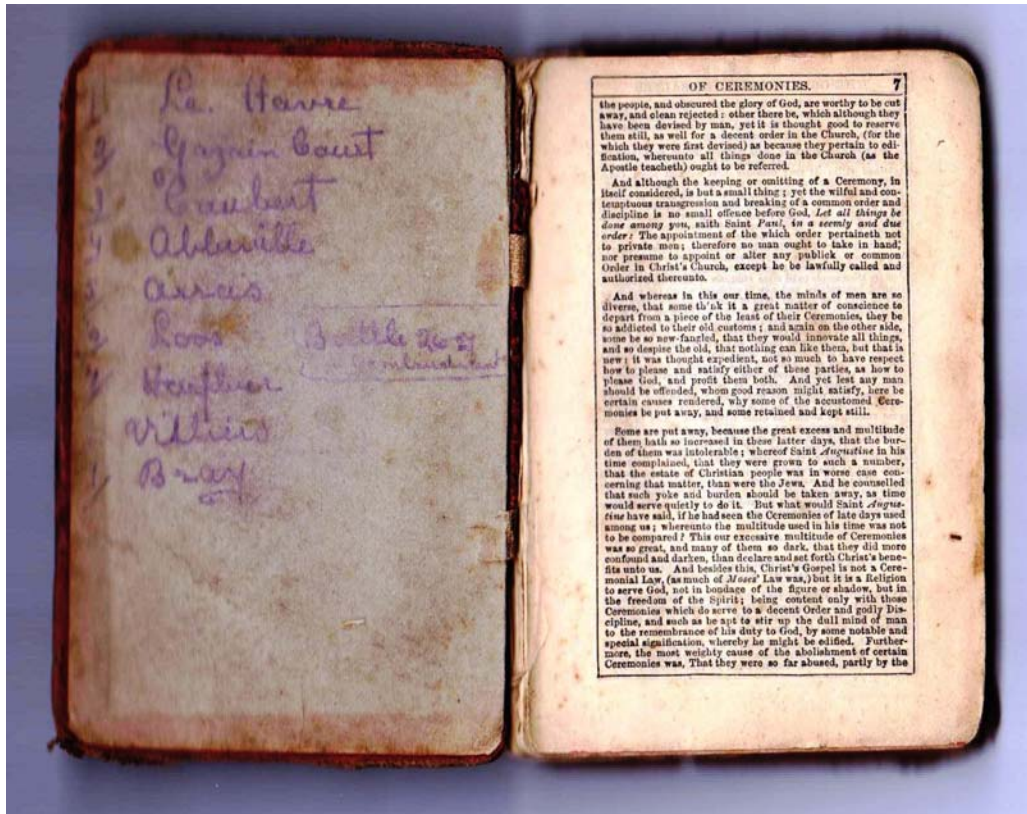 Le. Havre
Court
Abbeville
Arras
Loos
Battle 26
Bray
OF CEREMONIES. 7
the people, and obscured the glory of God, are worthy to be cut
away, and clean rejected : other there be, which although they
have been devised by man, yet it is thought good to reserve
them still, as well for a decent order in the Church, (for the
which they were first devised) as because they pertain to edi-
fication, whereunto all things done in the Church (as the
Apostle teacheth) ought to be referred.
And although the keeping or omitting of a Ceremony, in
itself considered, is but a small thing ; yet the wilful and con-
temptuous transgression and breaking of a common order and
discipline is no small offence before God, Let all things be
done among you, saith Saint Paul, in a seemly and due
order : The appointment of the which order pertaineth not
to private men ; therefore no man ought to take in hand,
nor presume to appoint or alter any publick or common
Order in Christ's Church, except he be lawfully called and
authorized thereunto.
And whereas in this our time, the minds of men are so
diverse, that some think it a great matter of conscience to
depart from a piece of the least of their Ceremonies, they be
so addicted to their old customs ; and again on the other side,
some be so new-fangled, that they would innovate all things,
and so despise the old, that nothing can like them, but that is
new : it was thought expedient, not so much to have respect
how to please and satisfy either of these parties, as how to
please God, and profit them both. And yet lest any man
should be offended, whom good reason might satisfy, here be
certain causes rendered, why some of the accustomed Cere-
monies be put away, and some retained and kept still.
Some are put away, because the great excess and multitude
of them hath so increased in these latter days, that the bur-
den of them was intolerable ; whereof Saint Augustine in his
time complained, that they were grown to such a number,
that the estate of Christian people was in worse case con-
cerning that matter, than were the Jews. And he counselled
that such yoke and burden should be taken away, as time
would serve quietly to do it. But what would Saint Augus-
tine have said, if he had seen the Ceremonies of late days used
among us ; whereunto the multitude used in his time was not
to be compared ? This our excessive multitude of Ceremonies
was so great, and many of them so dark, that they did more
confound and darken, than declare and set forth Christ's bene-
fits unto us. And besides this, Christ's Gospel is not a Cere-
monial Law, (as much of Moses' Law was,) but it is a Religion
to serve God, not in bondage of the figure or shadow, but in
the freedom of the Spirit ; being content only with those
Ceremonies which do serve to a decent Order and godly Dis-
cipline, and such as be apt to stir up the dull mind of man
to the remembrance of his duty to God, by some notable and
special signification, whereby he might be edified. Further-
more, the most weighty cause of the abolishment of certain
Ceremonies was, That they were so far abused, partly by the